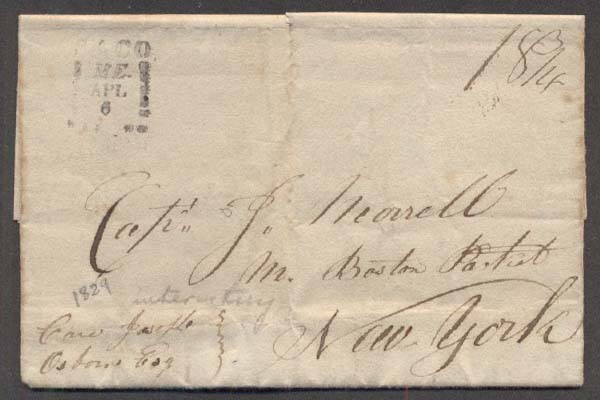 SACO
ME.
APL
6
18 3/4
Capt. J. Morrell
Boston Packet
New York
1829
interesting
Care Joseph
Osborn Esq